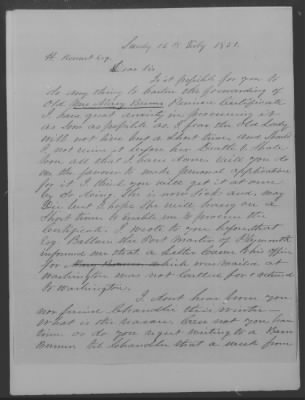 Sunday 16th Feby 1851.
H. Esq.
Dear Sir
Is it possible for you to
do any thing to hasten the forwarding of
Old Mrs Mercy Pension Certificate
I have great anxiety in procuring it
as soon as possible as I fear the Old Lady
will not live but a Short time and Should
I not receive it before her Death I Shall
loose all that I have done. Will you do
me the favour to make personal application
for it. I think you will get it at once
by So doing. She is now Sick and may
Die but I hope She will Survive an a
Short time to enable me to procure the
Certificate. I wrote to you before that
Esq. Post Master of Plymouth
informed me that a Letter his office
for which was mailed at
Washington was not Called for & returned
to Washington.
I dont hear from you
nor friend Chandler this Winter
What is the reason. have not you
time or do you regret writing to a
Chandler that a week from